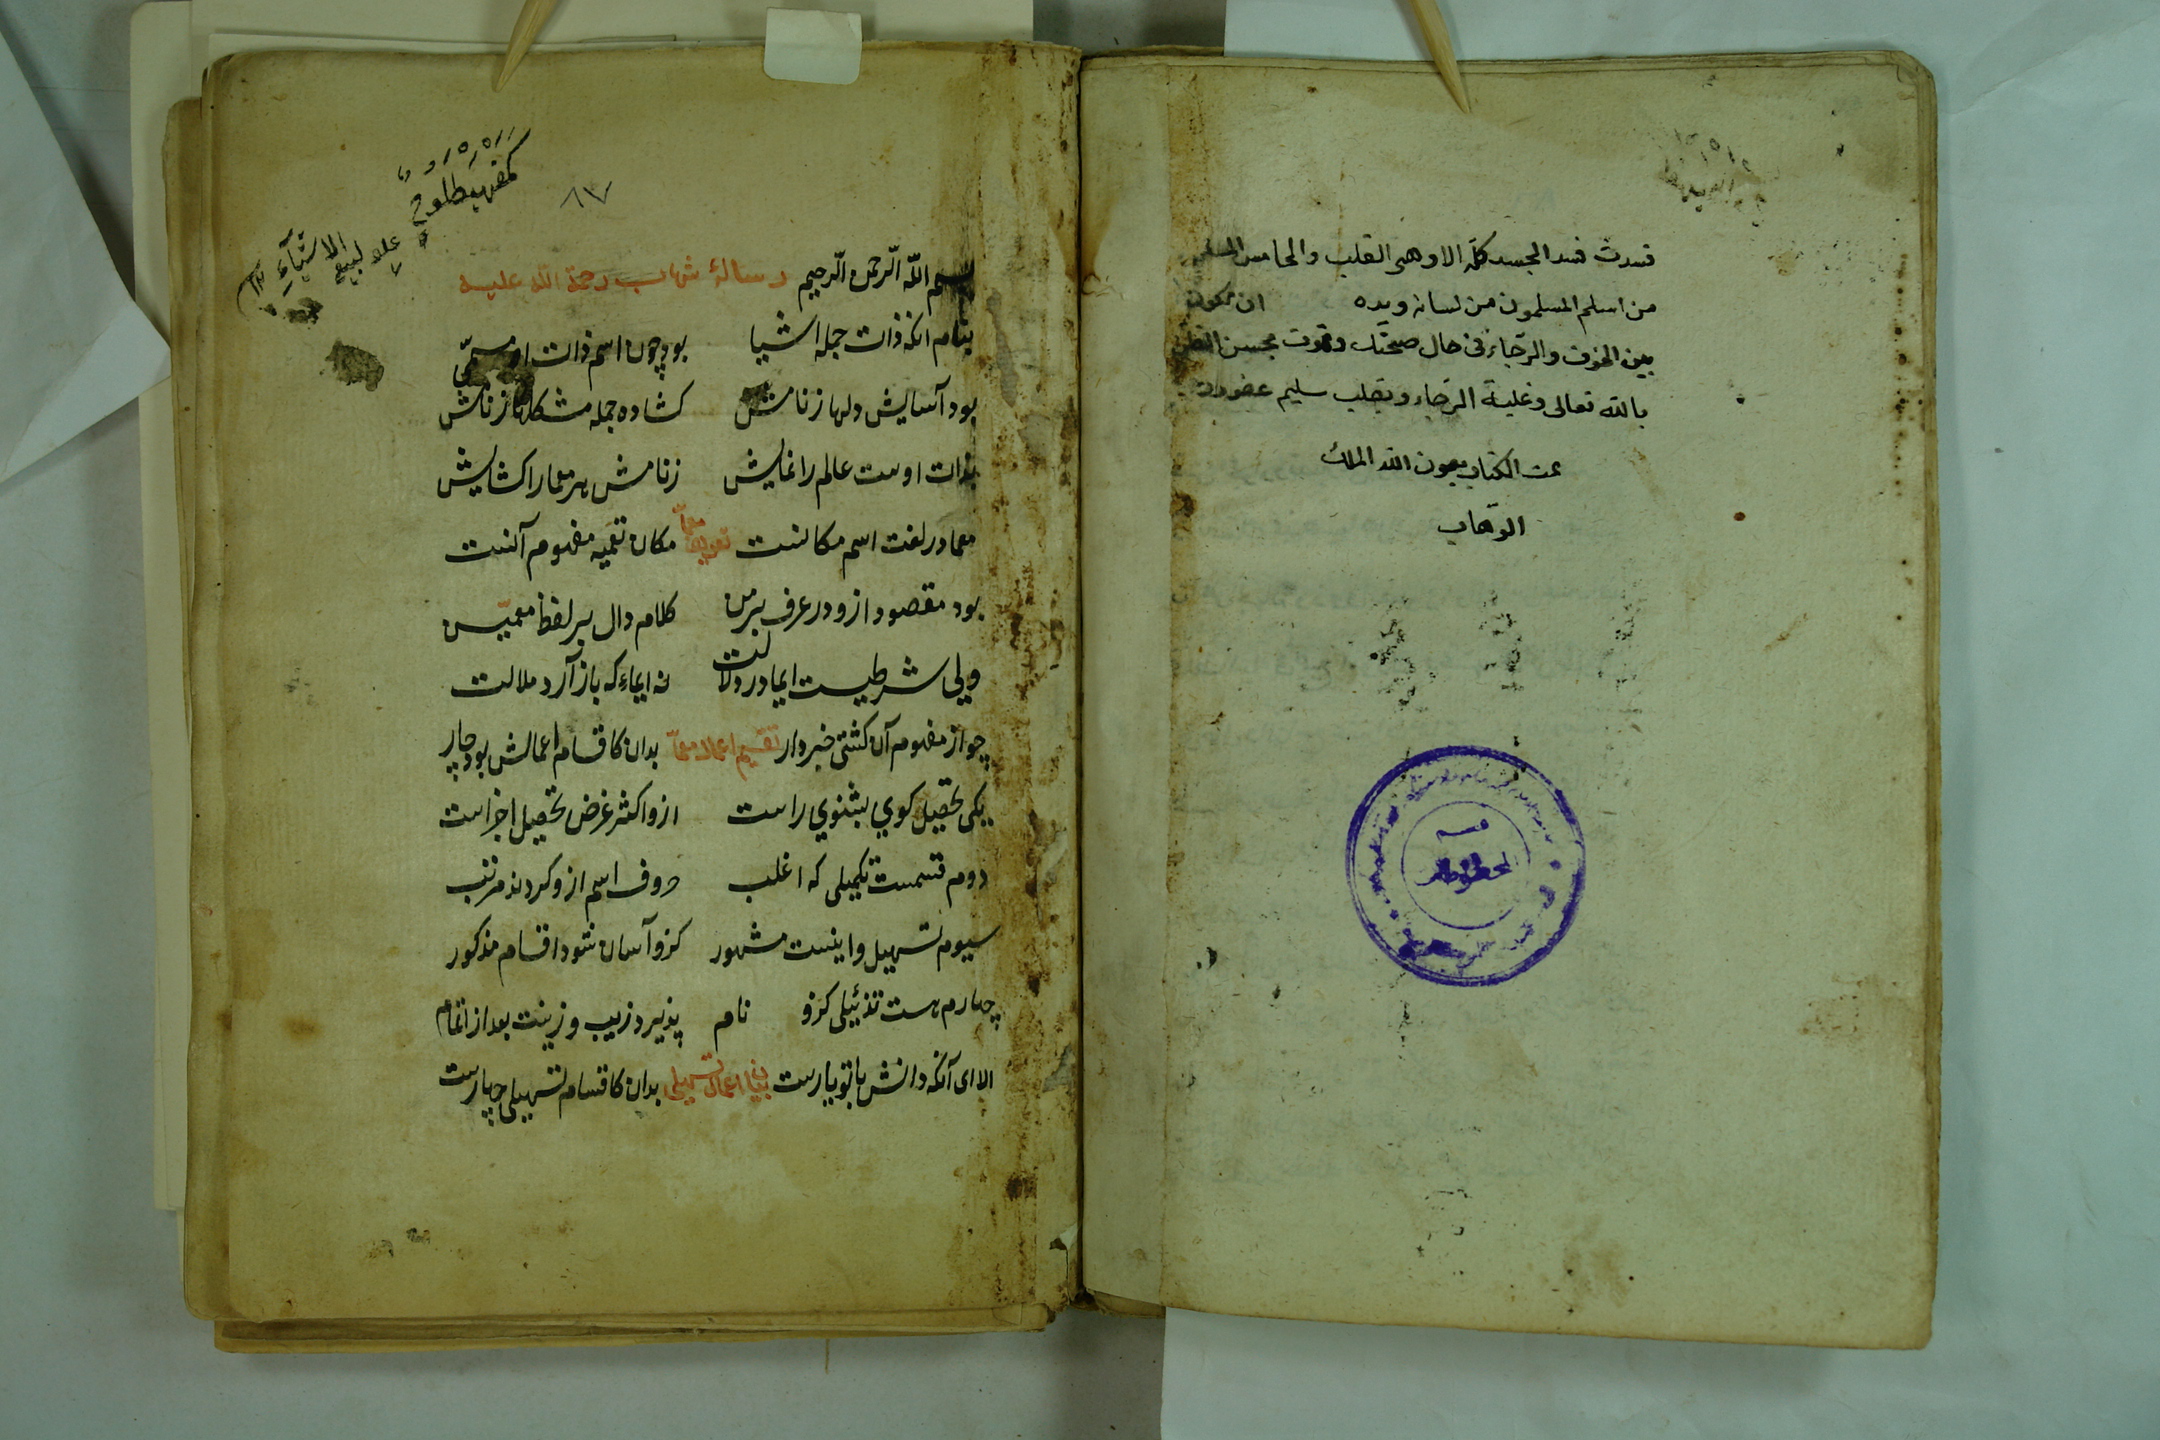 فسدت فسد الجسد كله الا وهى القلب والخامس المسلم
من اسلم المسلمون من لسانه ويده ان تكون
بين الخوف والرجاء فى حال صحتك وتموت بحسن الظن
بالله تعالى وغلبة الرجاء وبقلب سليم
تمت الكتاب بعون الله الملك
الوهاب
قسم
المخطوطات
٨٧
بسم الله الرحمن الرحيم رسالۀ شهاب رحمة الله عليه
بنام انكه ذات جمله اشيا بود چون اسم ذات او مسمّى
بود آسايش دلها ز نامش كشاده جمله مشكلها ز نامش
بذات اوست عالم را نمايش ز نامش هر معما را كشايش
معما در لغت اسم مكانست تعريف معمّا مكان تعميه مفهوم آنست
بود مقصود ازو در عرف پر من كلام دال بر لفظ معمّيس
ولى شرطيست ايما در دلالت نه ايماء كه باز آرد ملالت
چو از مفهوم آن كشتى خبردار تقسيم اعمال معمّا بدان كاقسام اعمالش بود چار
يكى تحصيل كوي بشنوي راست ازو اكثر غرض تحصيل اجزاست
دوم قسمست تكميلى كه اغلب حروف اسم ازو كردند مرتب
سيوم تسهيل و اينست مشهور كزو آسان شود اقسام مذكور
چهارم هست تذئيلى كزو نام پذيرد زيب و زينت بعد از اتمام
الا اى آنكه دانش با تو يارست بيان اعمال تسهيلى بدان كاقسام تسهيلى چهارست